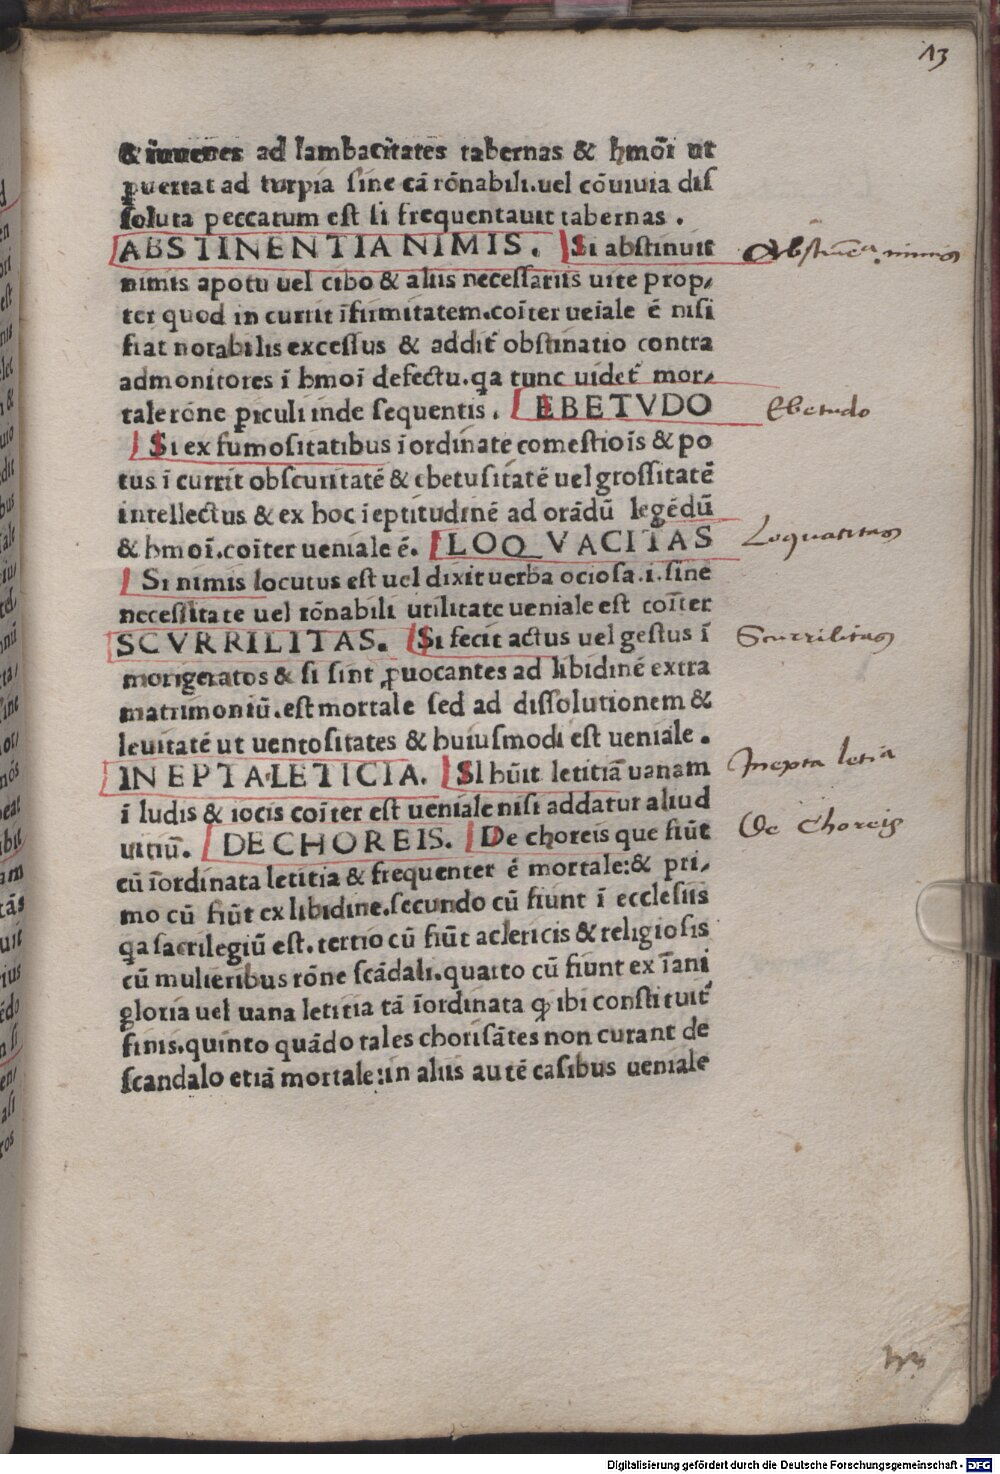 13
& iuuenes ad lambacitates tabernas & hmōi ut
puertat ad turpia sine cā rōnabili.uel cōuiuia dis
soluta peccatum est si frequentauit tabernas .
ABSTINENTIA NIMIS . Si abstinuit
nimis a potu uel cibo & aliis necessariis uite prop/
ter quod in currit īfirmitatem.coīter ueiale ē nisi
fiat notabilis excessus & addit̄ obstinatio contra
admonitores ī hmoī defectu.qa tunc uidet̄ mor/
tale rōne piculi inde sequentis . EBETVDO
Si ex fumositatibus īordinate comestiōis & po
tus ī currit obscuritatē & ebetusitatē uel grossitatē
intellectus & ex hoc ī eptitudinē ad orādū legēdū
& hmoī.coīter ueniale ē. LOQVACITAS
Si nimis locutus est uel dixit uerba ociosa.i.sine
necessitate uel rōnabili utilitate ueniale est coīter
SCVRRILITAS. Si fecit actus uel gestus ī
morigeratos & si sint ꝓuocantes ad libidinē extra
matrimoniū.est mortale sed ad dissolutionem &
leuitatē ut uentositates & huiusmodi est ueniale .
INEPTA LETICIA. SI hūit letitiā uanam
ī ludis & iocis coīter est ueniale nisi addatur aliud
uitiū. DE CHOREIS. De choreis que fiūt
cū īordinata letitia & frequenter ē mortale:& pri/
mo cū fiūt ex libidine.secundo cū fiunt ī ecclesiis
qa sacrilegiū est.tertio cū fiūt a clericis & religiosis
cū mulieribus rōne scādali.quarto cū fiunt ex īani
gloria uel uana letitia tā īordinata ꝙ ibi constituit̄
finis.quinto quādo tales chorisātes non curant de
scandalo etiā mortale:in aliis autē casibus ueniale
Abstinē̄a nimis
Ebetudo
Loquacitas
Scurrilitas
Inepta letia
De Choreis
Digitalisierung gefördert durch die Deutsche Forschungsgemeinschaft - DFG